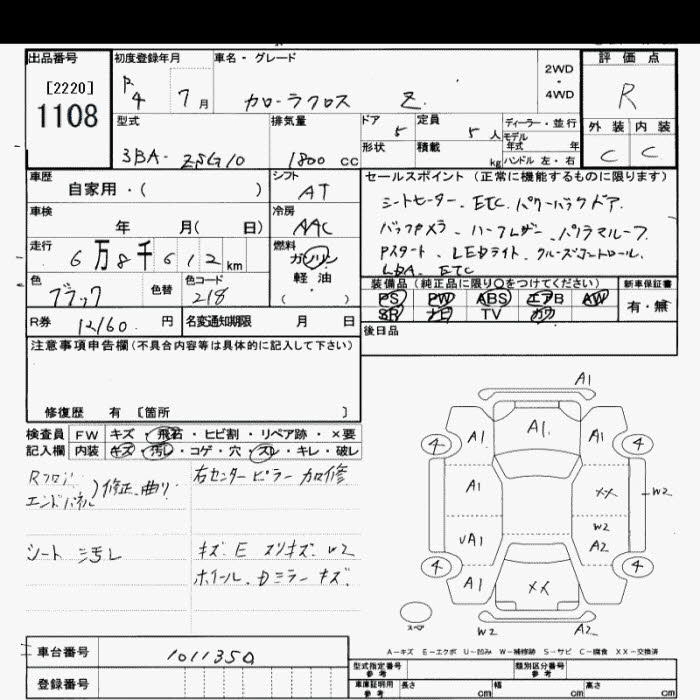 出品番号 初度登録年月 車名・グレード 2WD・4WD 評価点
[2220]
1108
R4 7月 カローラクロス Z R
型式 排気量 ドア 定員 ディーラー・並行 外装 内装
3BA-ZSG10 1800cc 5 5人 モデル年式 年 C C
形状 積載 kg ハンドル 左・右
車歴 シフト セールスポイント (正常に機能するものに限ります)
自家用・( ) AT シートヒーター、ETC、パワーバックドア、
車検 冷房 バックカメラ、ハーフレザー、パノラマルーフ、
年 月( 日) AAC Pスタート、LEDライト、クルーズコントロール、
走行 燃料 LDA、ETC
6万8千612km ガソリン
軽油
( )
色 色替 色コード 装備品(純正品に限り○をつけてください) 新車保証書
ブラック 218 PS PW ABS エアB AW 有・無
SR ナビ TV カワ
R券 12160円 名変通知期限 月 日 後日品
注意事項申告欄(不具合内容等は具体的に記入して下さい)
修復歴 有 〔箇所 〕
検査員 FW キズ・飛石・ヒビ割・リペア跡・×要
記入欄 内装 キズ・汚レ・コゲ・穴・スレ・キレ・破レ
Rフロア
エンドパネル )修正、曲り
右センターピラー 加修
シート 汚レ
キズ E スリキズ W2
ホイール、Dミラーキズ
A1
A1 A1. A1
4 4
A1 XX W2
W2
UA1 A2
4 4
A1 XX
スペア W2 A2
A-キズ E-エクボ U-凹み W-補修跡 S-サビ C-腐食 XX-交換済
車台番号 1011350
登録番号
型式指定番号 参考 類別区分番号 参考
車庫証明用 参考 長さ cm 幅 cm 高さ cm